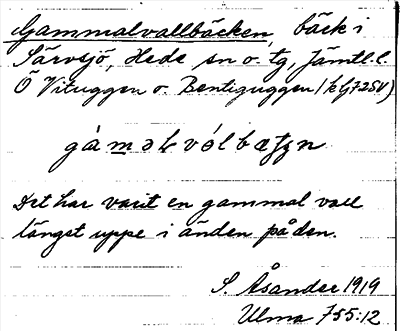 Gammalvallbäcken, bäck i
Särvsjö, Hede sn o. tg, Jämtl. l.
Ö Vituggen o. Bentiguggen (k bj 7254)
gámǝlvólbæʈʂn
Det har varit en gammal vall
längst uppe i änden på den.
S. Åsander 1919
Ulma 755:12